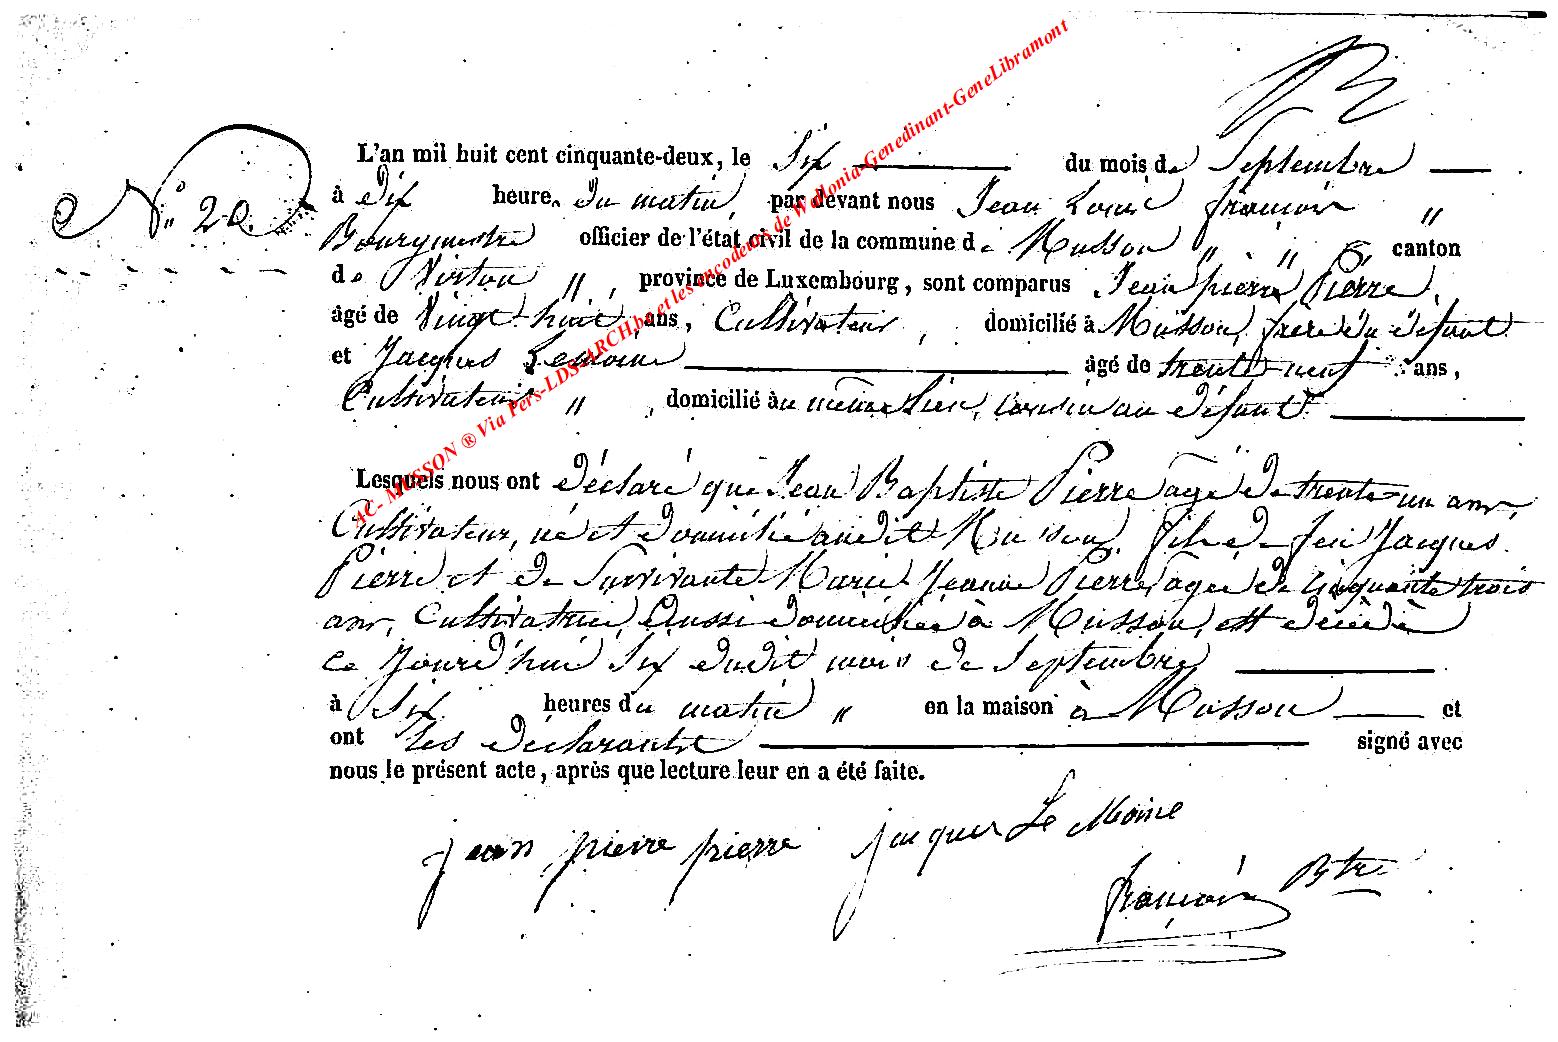 N.° 20.
L'an mil huit cent cinquante-deux, le Six du mois de Septembre
à dix heures du matin, par devant nous Jean Louis françois "
Bourgmestre officier de l'état civil de la commune de Musson " " canton
de Virton ", province de Luxembourg, sont comparus Jean pierre Pierre,
âgé de Vingt-huit ans, Cultivateur, domicilié à Musson, frère du défunt
et Jacques Lemoine âgé de trente-neuf ans,
Cultivateur ", domicilié au même lieu, cousin au défunt
Lesquels nous ont déclaré que Jean Baptiste Pierre agé de trente-un ans,
Cultivateur, né et domicilié audit Musson, fils de feu Jacques
Pierre et de Survivante Marie Jeanne Pierre, agée de cinquante trois
ans, Cultivatrice, Aussi domiciliée à Musson, est décédé
Ce Jourd'hui Six dudit mois de Septembre
à Six heures du matin " en la maison à Musson et
ont les déclarants signé avec
nous le présent acte, après que lecture leur en a été faite.
jean pierre pierre jacques Le Moine
françois Btre
AC- MUSSON ® Via Pers-LDS-ARCH.be et les encodeurs de Wallonia-Genedinant-GeneLibramont